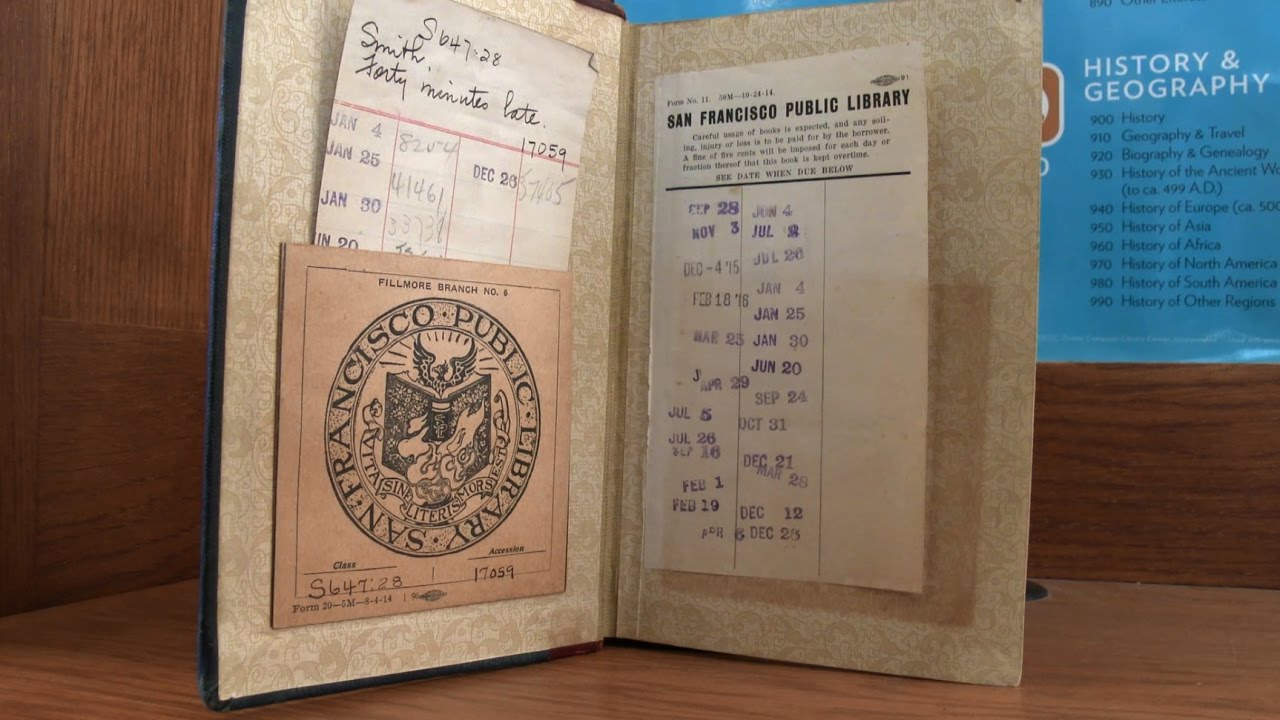 S647:28
Smith,
Forty minutes late.
17059
JAN 4 8204
JAN 25 DEC 26 37405
41461
JAN 30
UN 20
FILLMORE BRANCH NO. 6
SAN FRANCISCO PUBLIC LIBRARY
VITA SINE LITERIS MORS EST
Class Accession
S647:28 17059
Form 20—5M—8-4-14
Form No. 11. 50M—10-24-14. 91
SAN FRANCISCO PUBLIC LIBRARY
Careful usage of books is expected, and any soil-
ing, injury or loss is to be paid for by the borrower.
A fine of five cents will be imposed for each day or
fraction thereof that this book is kept overtime.
SEE DATE WHEN DUE BELOW
SEP 28
NOV 3
DEC -4 '15
FEB 18 '16
MAR 25
APR 29
JUL 5
JUL 26
SEP 16
FEB 1
FEB 19
APR 6
JUN 4
JUL
JUL 26
JAN 4
JAN 25
JAN 30
JUN 20
SEP 24
OCT 31
DEC 21
MAR 28
DEC 12
DEC 28
HISTORY &
GEOGRAPHY
900 History
910 Geography & Travel
920 Biography & Genealogy
930 History of the Ancient Wo
(to ca. 499 A.D.)
940 History of Europe (ca. 500
950 History of Asia
960 History of Africa
970 History of North America
980 History of South America
990 History of Other Regions